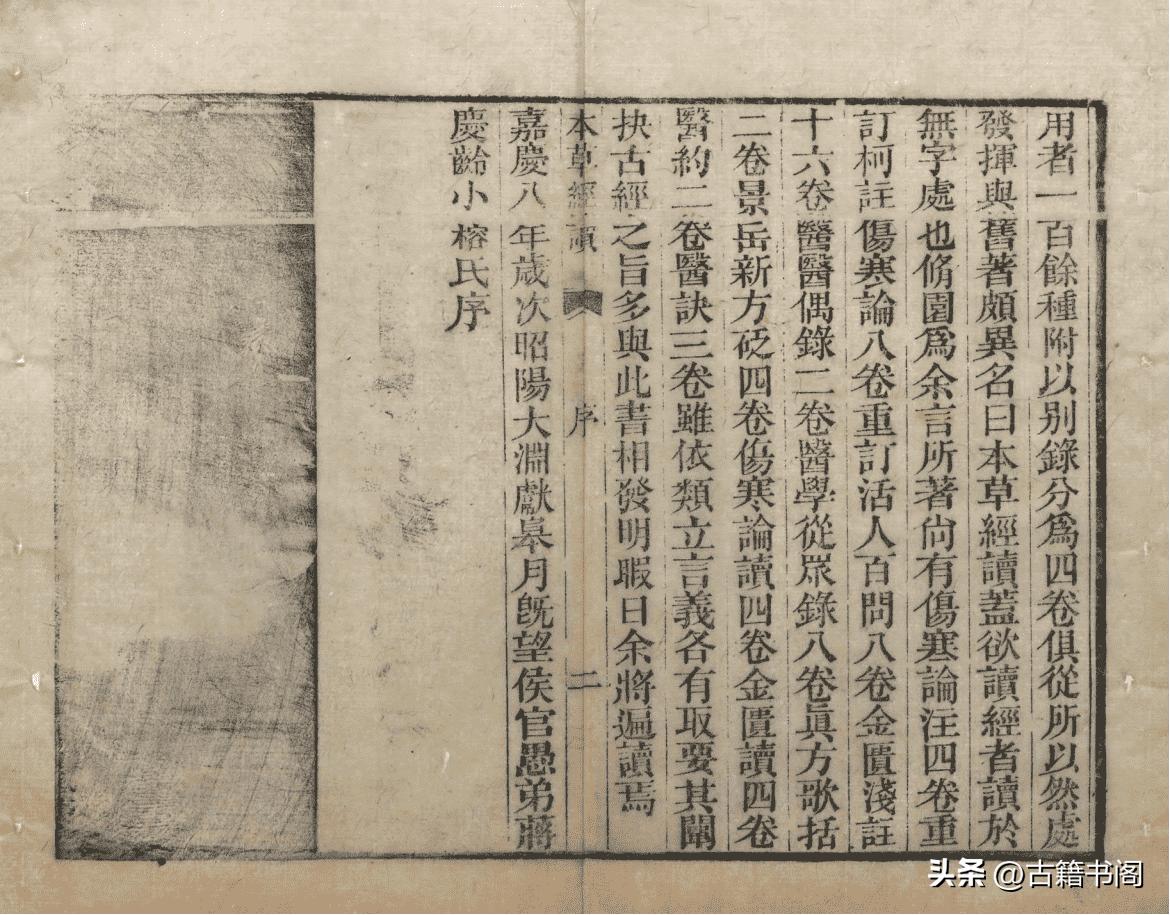 用者一百餘種附以別錄分爲四卷俱從所以然處
發揮與舊著頗異名曰本草經讀蓋欲讀經者讀於
無字處也脩園爲余言所著尙有傷寒論注四卷重
訂柯註傷寒論八卷重訂活人百問八卷金匱淺註
十六卷醫醫偶錄二卷醫學從眾錄八卷眞方歌括
二卷景岳新方砭四卷傷寒論讀四卷金匱讀四卷
醫約二卷醫訣三卷雖依類立言義各有取要其闡
抉古經之旨多與此書相發明暇日余將遍讀焉
本草經讀 序 二
嘉慶八年歲次昭陽大淵獻皋月旣望侯官愚弟蔣
慶齡小榕氏序
头条 @古籍书阁